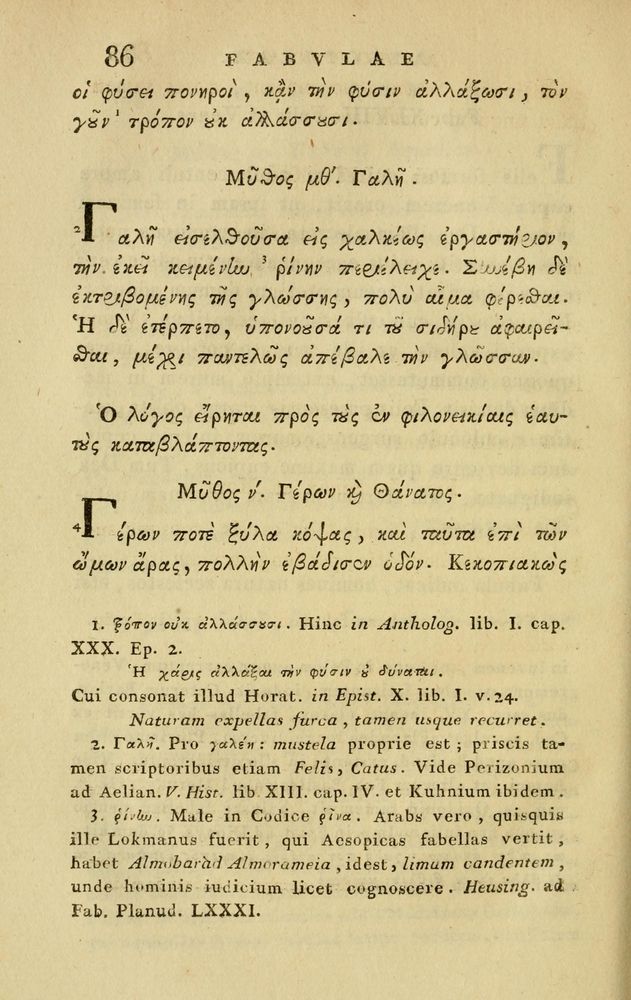 86 FABVLAE
οἱ φύσει πονηροὶ, κἂν τὴν φύσιν ἀλλάξωσι, τὸν
γοῦν ¹ τρόπον οὐκ ἀλλάσσουσι.
Μῦθος μθ'. Γαλῆ.
² Γαλῆ εἰσελθοῦσα εἰς χαλκέως ἐργαστήριον,
τὴν ἐκεῖ κειμένην ³ ῥίνην περιέλειχε. Συνέβη δὲ
ἐκτριβομένης τῆς γλώσσης, πολὺ αἷμα φέρεσθαι.
Ἡ δὲ ἐτέρπετο, ὑπονοοῦσά τι τοῦ σιδήρου ἀφαιρεῖ-
σθαι, μέχρι παντελῶς ἀπέβαλε τὴν γλῶσσαν.
Ὁ λόγος εἴρηται πρὸς τοὺς ἐν φιλονεικίαις ἑαυ-
τοὺς καταβλάπτοντας.
Μῦθος ν'. Γέρων καὶ Θάνατος.
⁴ Γέρων ποτὲ ξύλα κόψας, καὶ ταῦτα ἐπὶ τῶν
ὤμων ἄρας, πολλὴν ἐβάδισεν ὁδόν. Κεκοπιακὼς
1. τρόπον οὐκ ἀλλάσσουσι. Hinc in Antholog. lib. I. cap.
XXX. Ep. 2.
Ἡ χάρις ἀλλάξαι τὴν φύσιν οὐ δύναται.
Cui consonat illud Horat. in Epist. X. lib. I. v. 24.
Naturam expellas furca, tamen usque recurret.
2. Γαλῆ. Pro γαλέη: mustela proprie est; priscis ta-
men scriptoribus etiam Felis, Catus. Vide Perizonium
ad Aelian. V. Hist. lib XIII. cap. IV. et Kuhnium ibidem.
3. ῥίνην. Male in Codice ῥῖνα. Arabs vero, quisquis
ille Lokmanus fuerit, qui Aesopicas fabellas vertit,
habet Almobarad Almorameia, idest, limum candentem,
unde hominis iudicium licet cognoscere. Heusing. ad
Fab. Planud. LXXXI.